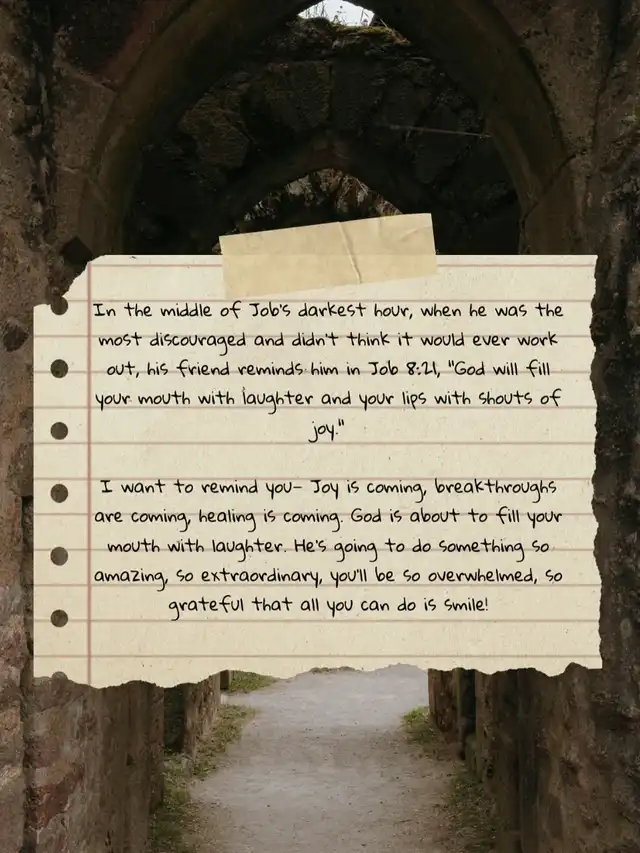 In the middle of Job's darkest hour, when he was the
most discouraged and didn't think it would ever work
out, his friend reminds him in Job 8:21, "God will fill
your mouth with laughter and your lips with shouts of
joy."
I want to remind you- Joy is coming, breakthroughs
are coming, healing is coming. God is about to fill your
mouth with laughter. He's going to do something so
amazing, so extraordinary, you'll be so overwhelmed, so
grateful that all you can do is smile!